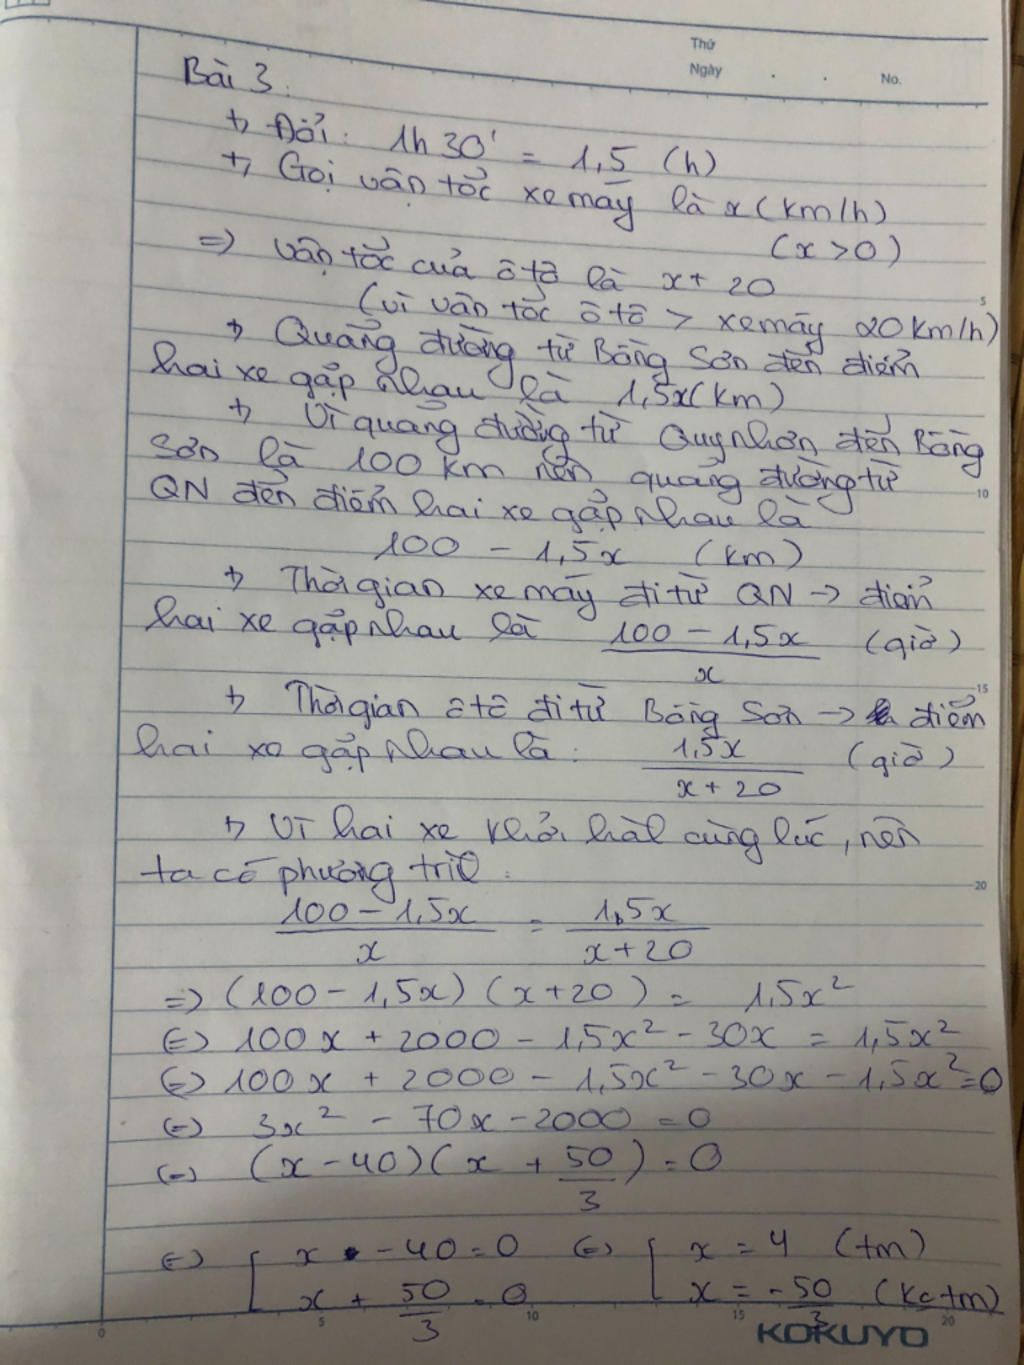 Thứ
Ngày . . No.
Bài 3.
+, Đổi: 1h 30' = 1,5 (h)
+, Gọi vận tốc xe máy là x (km/h)
(x > 0)
=> vận tốc của ô tô là x + 20
(vì vận tốc ô tô > xe máy 20 km/h)
+, Quãng đường từ Bồng Sơn đến điểm
hai xe gặp nhau là 1,5x (km)
+, Vì quãng đường từ Quy nhơn đến Bồng
Sơn là 100 km nên quãng đường từ
QN đến điểm hai xe gặp nhau là
100 - 1,5x (km)
+, Thời gian xe máy đi từ QN -> điểm
hai xe gặp nhau là (100 - 1,5x)/x (giờ)
+, Thời gian ô tô đi từ Bồng Sơn -> điểm
hai xe gặp nhau là: 1,5x/(x + 20) (giờ)
+, Vì hai xe khởi hàh cùng lúc, nên
ta có phương trìh:
(100 - 1,5x)/x = 1,5x/(x + 20)
=> (100 - 1,5x) (x + 20) = 1,5x²
(=) 100x + 2000 - 1,5x² - 30x = 1,5x²
(=) 100x + 2000 - 1,5x² - 30x - 1,5x² = 0
(=) 3x² - 70x - 2000 = 0
(=) (x - 40) (x + 50/3) = 0
(=) [ x - 40 = 0 (=) [ x = 4 (tm)
x + 50/3 = 0 x = -50/3 (ko tm)
5
10
15
20
0 5 10 15 20
KOKUYO